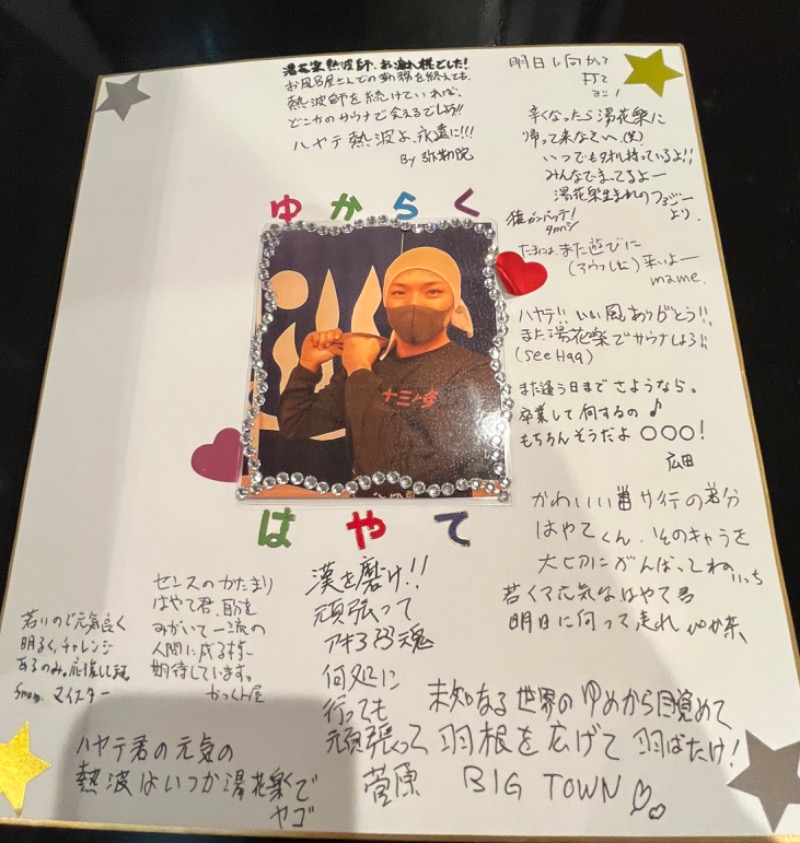 湯花楽熱波師、お疲れ様でした!
お風呂屋さんでの勤務を終えても、
熱波師を続けていれば、
どこかのサウナで会えるでしょう!!
ハヤテ熱波よ、永遠に!!!
By 弥勒院
明日に向かって
打て
ヨニ!
辛くなったら湯花楽に
帰って来なさい(笑)
いつでもタオル持っているよ!!
みんなでまってるよー
湯花楽生まれの
より。
たまには、また遊びに
来いよー
mame.
ハヤテ!!いい風ありがとう!!
また湯花楽でサウナしよう!!
(see Haa)
また逢う日まで さようなら。
卒業して何するの♪
もちろんそうだよ ○○○!
広田
かわいい サ行の
はやてくん、そのキャラを
大切にがんばってね
いっち
若くて元気なはやて君
明日に向って走れ
ゆからく
十三
はやて
漢を磨け!!
頑張って
魂
何処に
行っても
頑張って
菅原
センスのかたまり
はやて君、
みがいて一流の
人間に成る様
期待しています。
かっくん屋
若いので元気良く
明るく、チャレンジ
あるのみ。応援してる。
マイスター
未知なる世界のゆめから目覚めて
羽根を広げて羽ばたけ!
BIG TOWN
ハヤテ君の元気の
熱波はいつか湯花楽で
ヤゴ